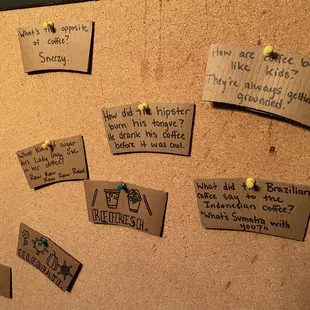 What's the opposite
of coffee?
Sneezy.
How are coffee be
like kids?
They're always gett
grounded.
How did the hipster
burn his tongue?
He drank his coffee
before it was cool.
What kind of sugar
does Lady
in her
Raw Raw Raw
What did the Brazilian
coffee say to the
Indonesian coffee?
"What's Sumatra with
you?"
REFRESH.